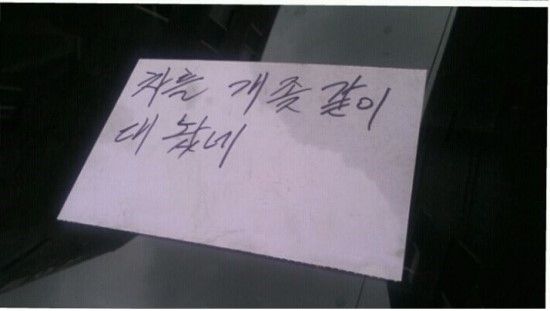 차를 개 좆 같이
대 놨네